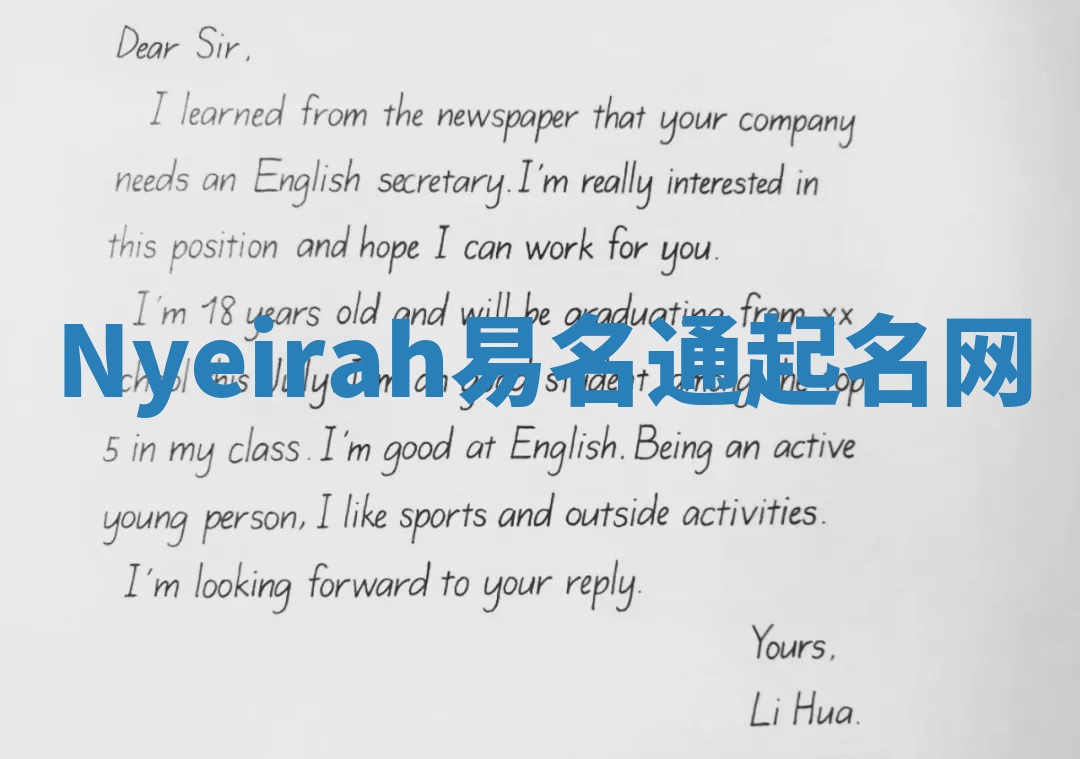 Dear Sir,
I learned from the newspaper that your company
needs an English secretary. I'm really interested in
this position and hope I can work for you.
I'm 18 years old and will be graduating from xx
Nyeirah易名通起名网
school this July. I'm an good student, among the top
5 in my class. I'm good at English. Being an active
young person, I like sports and outside activities.
I'm looking forward to your reply.
Yours,
Li Hua.